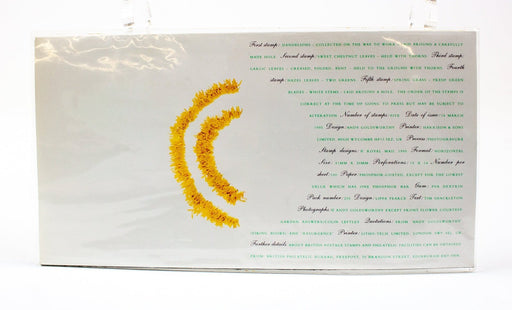 First stamp: DANDELIONS – COLLECTED ON THE WAY TO WORK – LAID AROUND A CAREFULLY
MADE HOLE. Second stamp: SWEET CHESTNUT LEAVES – HELD WITH THORNS. Third stamp:
GARLIC LEAVES – CREASED, FOLDED, BENT – HELD TO THE GROUND WITH THORNS. Fourth
stamp: HAZEL LEAVES – TWO GREENS. Fifth stamp: SPRING GRASS – FRESH GREEN
BLADES – WHITE STEMS – LAID AROUND A HOLE. THE ORDER OF THE STAMPS IS
CORRECT AT THE TIME OF GOING TO PRESS BUT MAY BE SUBJECT TO
ALTERATION. Number of stamps: FIVE. Date of issue: 14 MARCH
1995. Design: ANDY GOLDSWORTHY. Printer: HARRISON & SONS
LIMITED, HIGH WYCOMBE. Process: PHOTOGRAVURE.
Stamp designs: © ROYAL MAIL 1995. Format: HORIZONTAL.
Size: 41MM X 30MM. Perforations: Number per
sheet: 100. Paper: PHOSPHOR-COATED, EXCEPT FOR THE LOWEST
VALUE WHICH HAS ONE PHOSPHOR BAR. Gum: PVA DEXTRIN.
Pack number: Design: LIPPA PEARCE. Text: TIM SHACKLETON.
Photographs: © ANDY GOLDSWORTHY EXCEPT FRONT FLOWER, COURTESY
GARDEN Quotations: FROM 'ANDY GOLDSWORTHY'
(VIKING BOOKS) AND Printer: LITHO-TECH LIMITED, LONDON
Further details ABOUT BRITISH POSTAGE STAMPS AND PHILATELIC FACILITIES CAN BE OBTAINED
FROM: BRITISH PHILATELIC BUREAU, FREEPOST, 20 BRANDON STREET, EDINBURGH